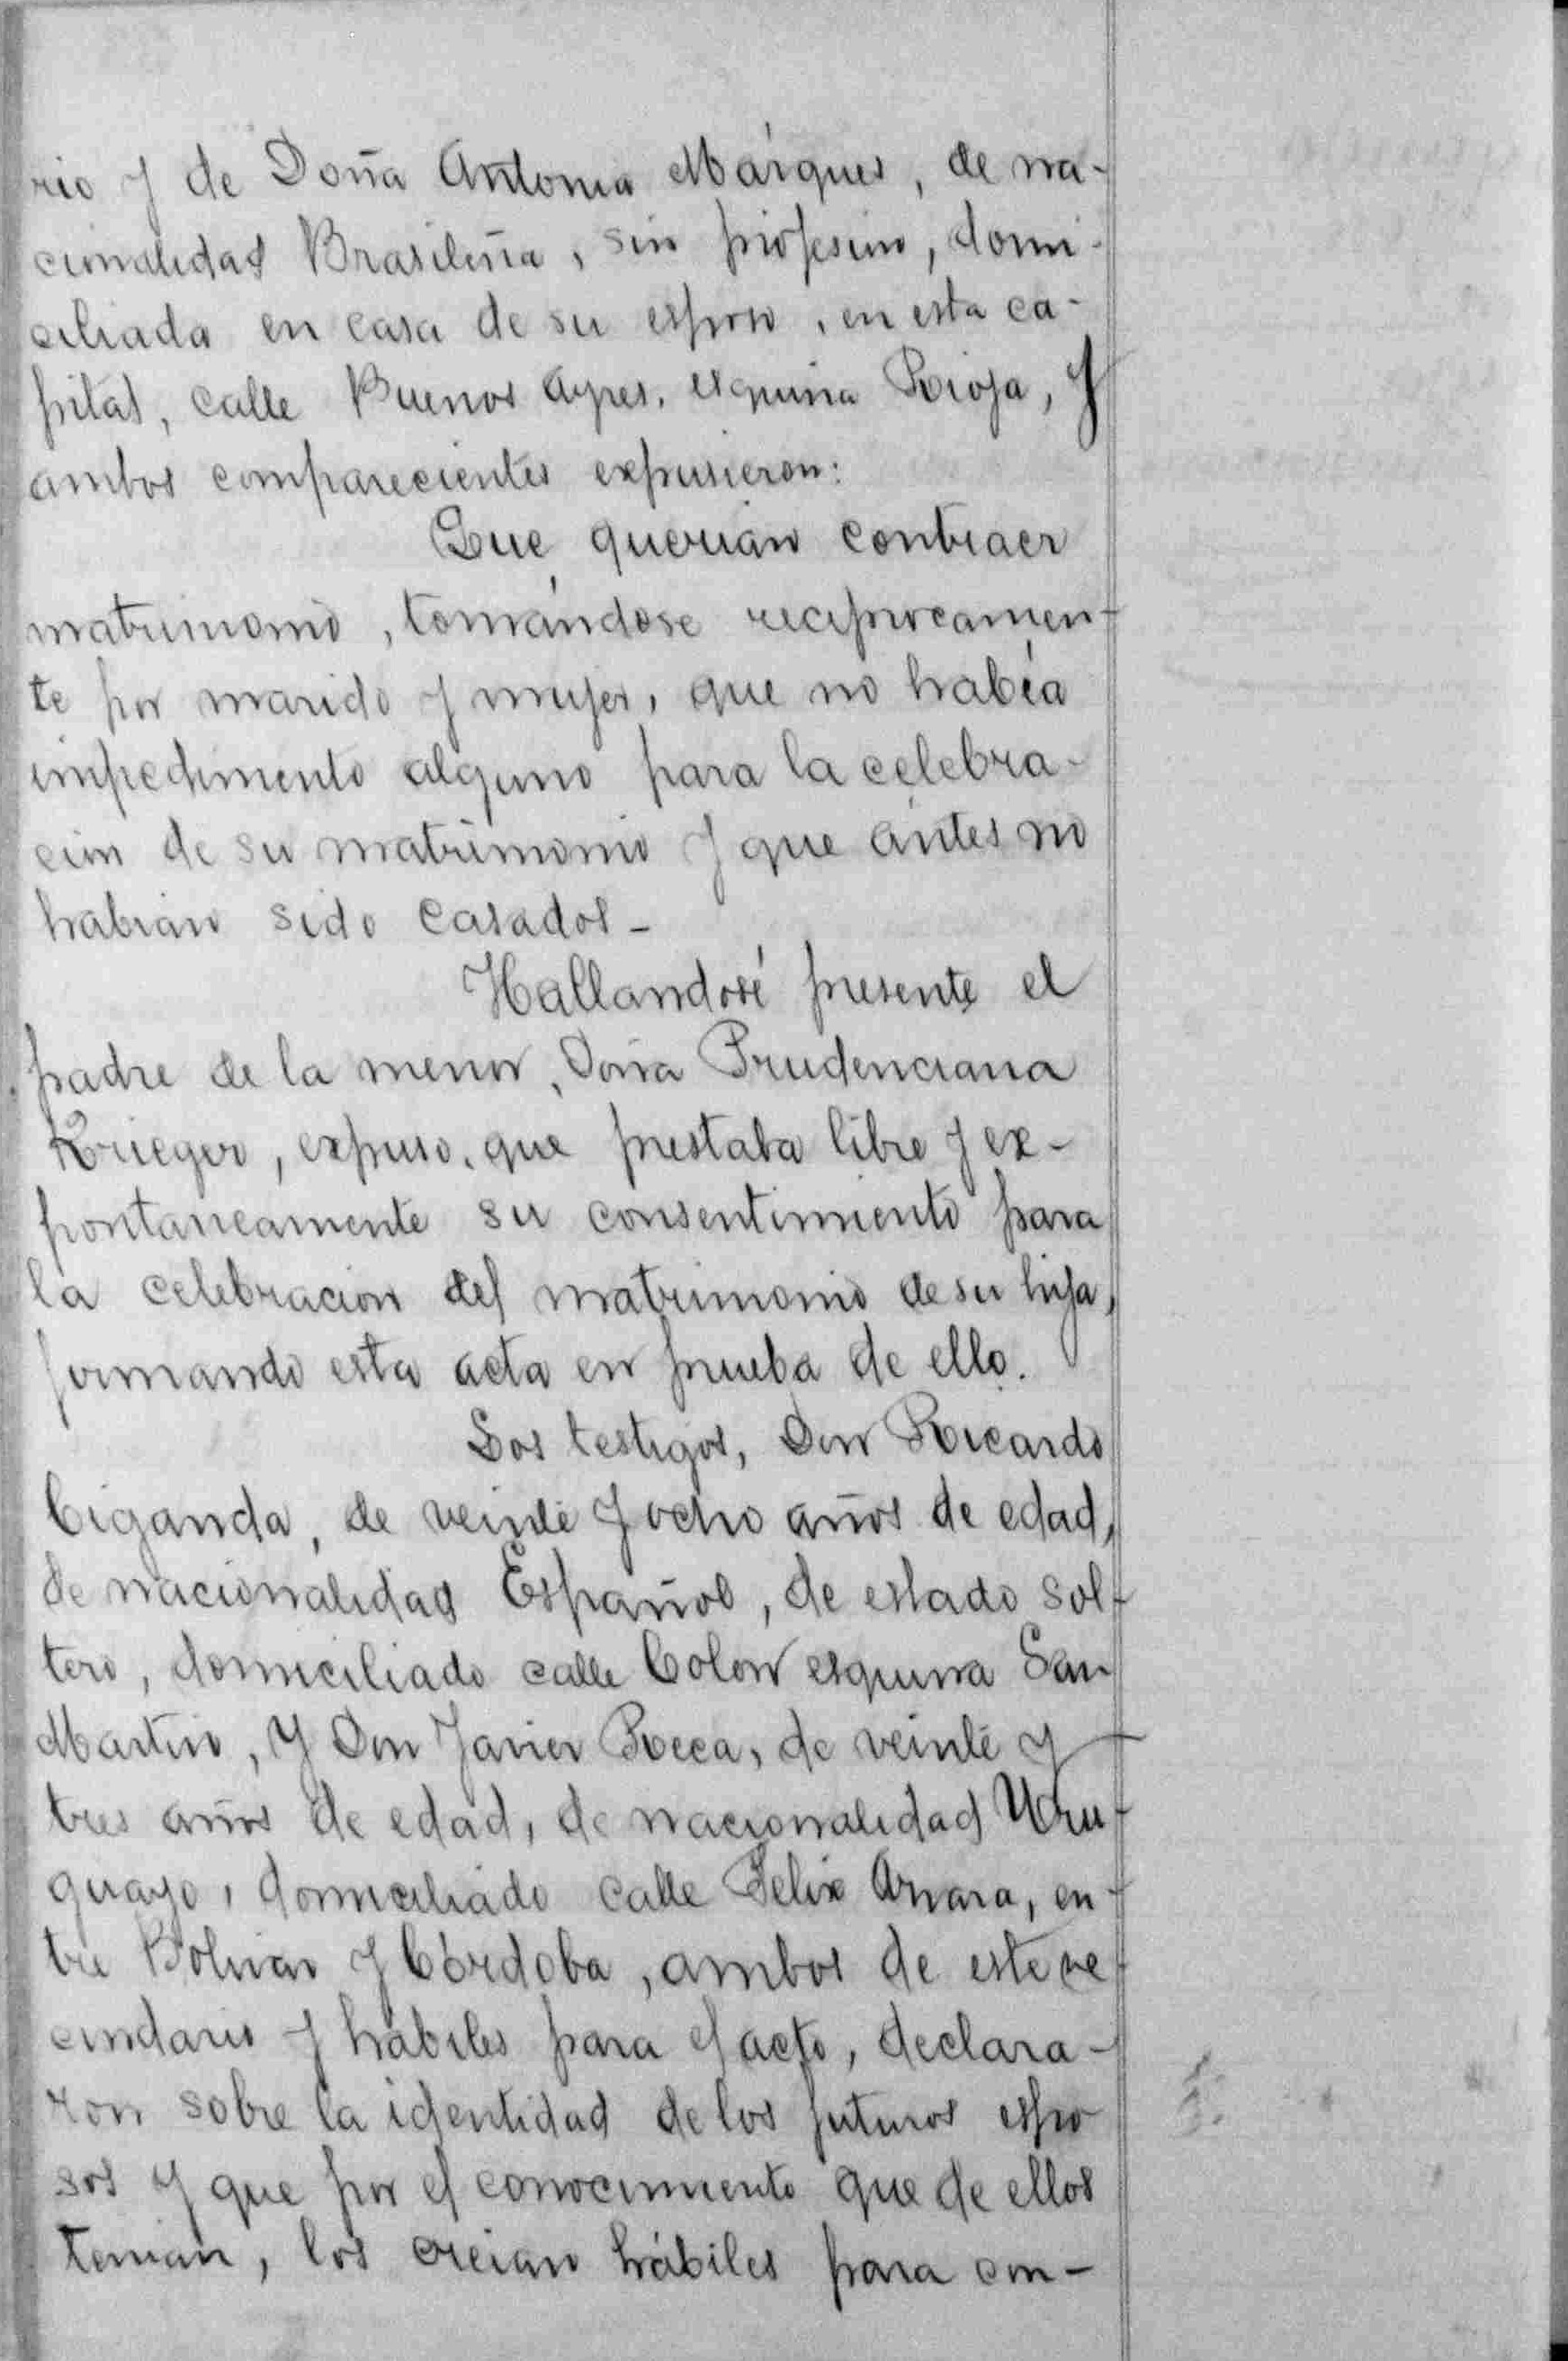 rio y de Doña Antonia Márques, de na-
cionalidad Brasileña, sin profesion, domi-
ciliada en casa de su esposo, en esta ca-
pital, calle Buenos Ayres, esquina Rioja, y
ambos comparecientes expusieron:
Que querian contraer
matrimonio, tomándose reciprocamen-
te por marido y mujer, que no habia
impedimento alguno para la celebra-
cion de su matrimonio y que ántes no
habian sido casados -
Hallandosé presente el
padre de la menor, Doña Prudenciana
Krieger, expuso, que prestaba libre y ex-
pontaneamente su consentimiento para
la celebracion del matrimonio de su hija,
firmando esta acta en prueba de ello.
Los testigos, Don Ricardo
Ciganda, de veinte y ocho años de edad,
de nacionalidad Español, de estado sol-
tero, domiciliado calle Colon esquina San
Martin, y Don Javier Roca, de veinte y
tres años de edad, de nacionalidad Uru-
guayo, domiciliado calle Felix Azara, en-
tre Bolivar y Córdoba, ambos de este ve-
cindario y hábiles para el acto, declara-
ron sobre la identidad de los futuros espo
sos y que por el conocimiento que de ellos
tenian, los creian hábiles para con-